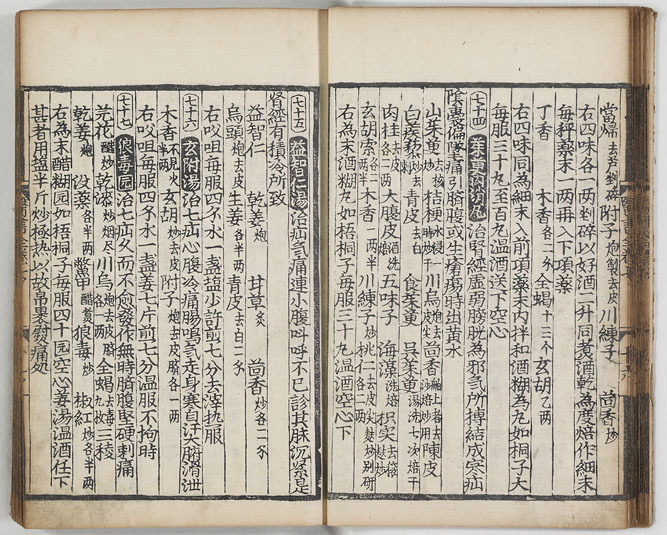 當歸去芦剉碎 附子炮製去皮 川練子 茴香炒
右四味各一两剉碎以好酒一升同煑酒乾為度焙作細末
每秤藥末一两再入下項藥
丁香 木香各二分 全蝎十三个 玄胡乙两
右四味同為細末入前項藥末内拌和酒糊為丸如桐子大
每服三十丸至百丸温酒送下空心
七十四 茱萸内消丸 治腎經虚弱膀胱為邪氣所搏結成寒疝
陰囊偏墜痛引臍腹或生瘡瘍時出黄水
山茱萸去核炒 桔梗水浸炒干 川烏炮去皮尖 茴香 陳皮
白蒺藜 青皮去白 食茱萸 吴茱萸湯洗七次焙干
肉桂去皮 大腹皮酒洗 五味子 海藻洗焙 枳实去穰麸炒
玄胡索各二两 木香一两半 川練子炒 桃仁去皮尖麸炒别研
右為末酒糊丸如梧桐子每服三十丸温酒空心下
七十五 益智仁湯 治疝氣痛連小腹呌呼不已診其脉沉緊是
腎經有積冷所致
益智仁 乾姜炮 甘草炙 茴香炒各二分
烏頭炮去皮 生姜各半两 青皮去白二分
右㕮咀每服四分水一盞塩少許煎七分去滓热服
七十六 玄附湯 治七疝心腹冷痛腸鳴氣走身寒自汗大腑滑泄
木香不見火半两 玄胡炒去皮 附子炮去皮臍各一两
右㕮咀每服四分水一盞姜七片煎七分温服不拘時
七十七 狼毒园 治七疝久而不愈發作無時臍腹堅硬刺痛
芫花醋炒 乾漆炒烟尽 川烏炮去皮臍 全蝎去毒 三稜
乾姜炮 没薬各半两 鱉甲醋煑 狼毒炒 椒紅炒各半两
右為末醋糊园如梧桐子每服四十园空心姜湯温酒任下
甚者用塩半斤炒極热以故帛裹熨痛处